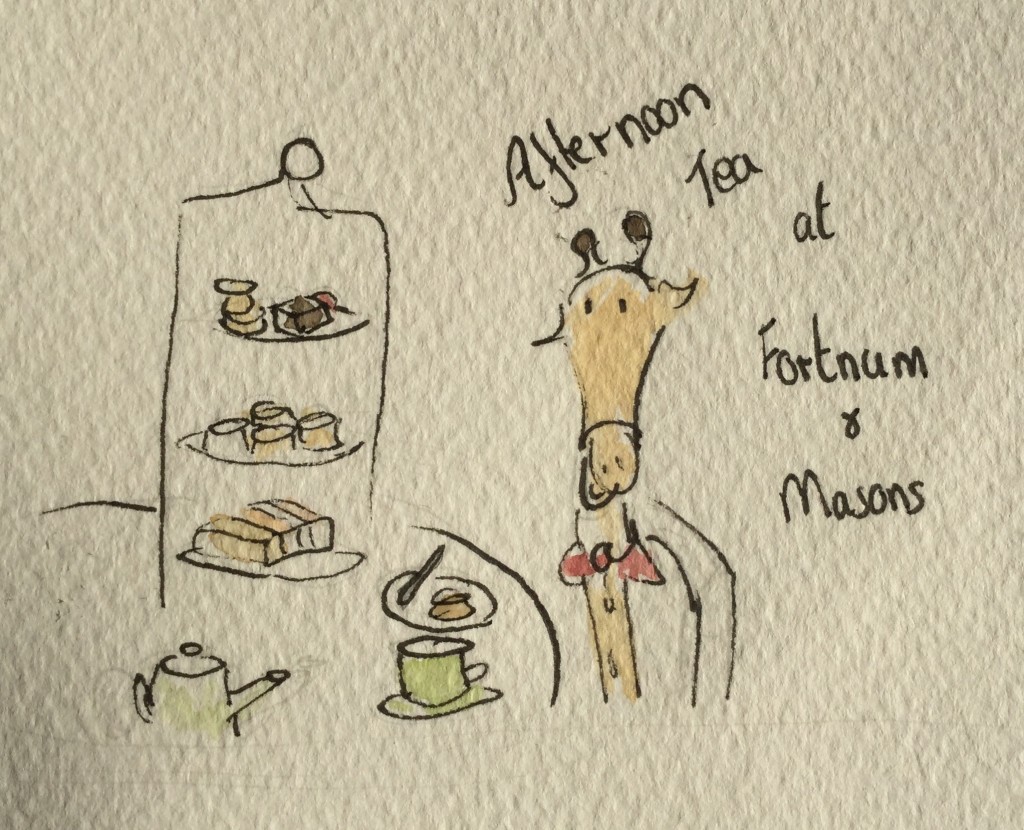 Afternoon
Tea
at
Fortnum
&
Masons